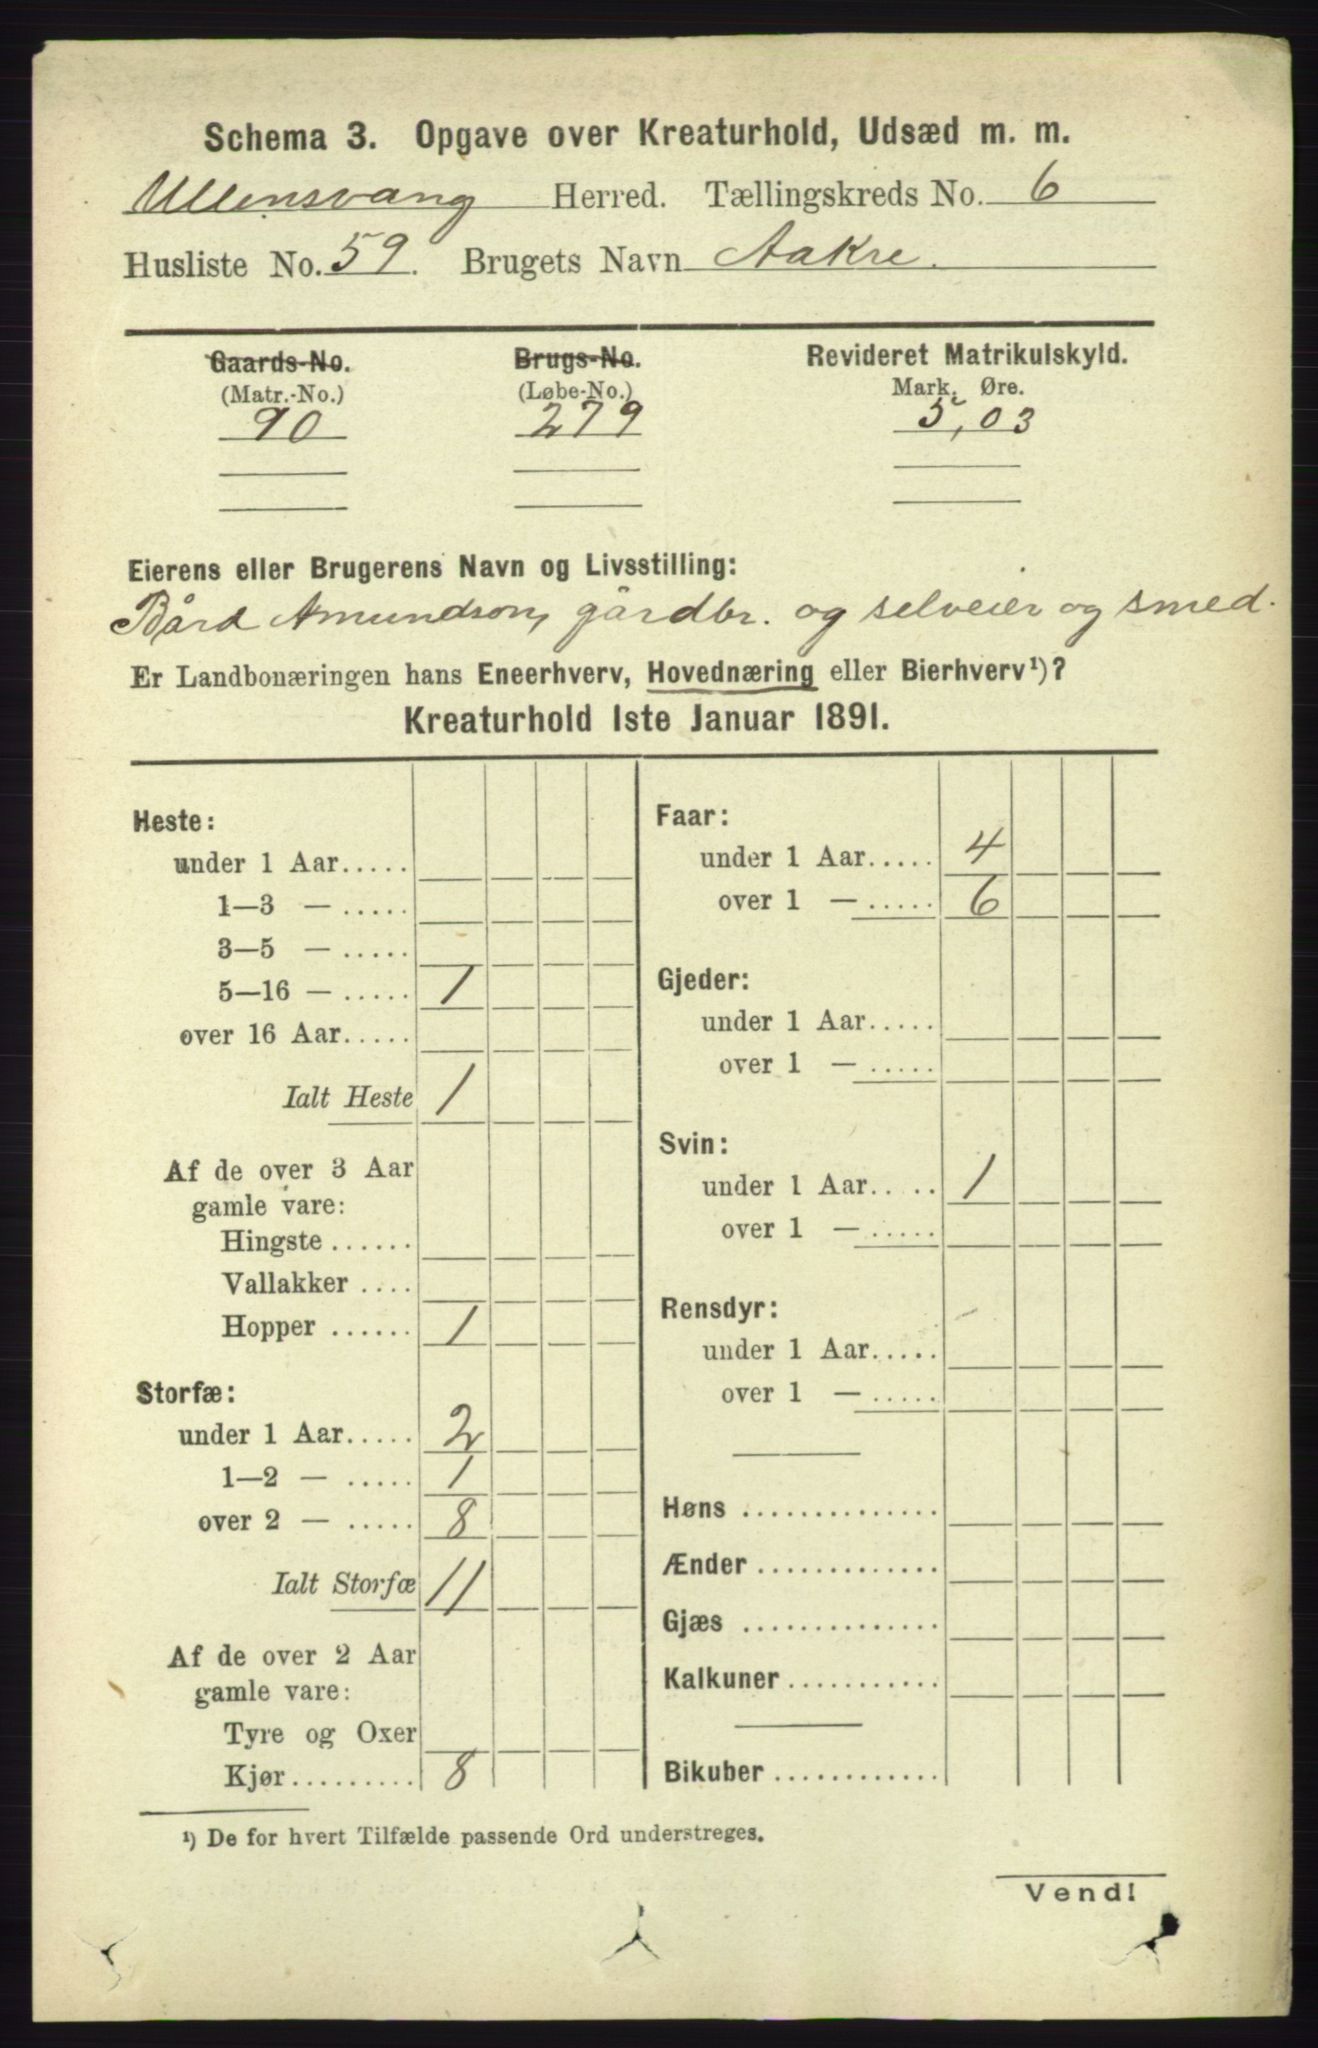 Schema 3. Opgave over Kreaturhold, Udsæd m. m.
Ullensvang Herred. Tællingskreds No. 6
Husliste No. 59. Brugets Navn Aakre.
Gaards-No. Brugs-No. Revideret Matrikulskyld.
(Matr.-No.) (Løbe-No.) Mark. Øre.
90 279 5,03
Eierens eller Brugerens Navn og Livsstilling:
Bård Amundson, gårdbr. og selveier og smed.
Er Landbonæringen hans Eneerhverv, Hovednæring eller Bierhverv¹)?
Kreaturhold 1ste Januar 1891.
Heste:
under 1 Aar.....
1—3 — .....
3—5 — .....
5—16 — ..... 1
over 16 Aar.....
Ialt Heste 1
Af de over 3 Aar
gamle vare:
Hingste ......
Vallakker ....
Hopper ...... 1
Storfæ:
under 1 Aar..... 2
1—2 — ..... 1
over 2 — ..... 8
Ialt Storfæ 11
Af de over 2 Aar
gamle vare:
Tyre og Oxer
Kjør......... 8
Faar:
under 1 Aar..... 4
over 1 — ..... 6
Gjeder:
under 1 Aar.....
over 1 — .....
Svin:
under 1 Aar..... 1
over 1 — .....
Rensdyr:
under 1 Aar.....
over 1 — .....
Høns ..............
Ænder .............
Gjæs ..............
Kalkuner ...........
Bikuber ............
¹) De for hvert Tilfælde passende Ord understreges.
Vend!